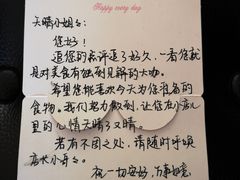 Happy every day
天晴小姐:
您好!
追您的点评追了好久,一看您就
是对美食有独到见解的大咖。
希望您能喜欢今天为您准备的
食物。我们努力做到,让您在小店
里的心情天晴了又晴。
若有不周之处,请随时呼唤
店长小哥。
祝一切安好,万事如意